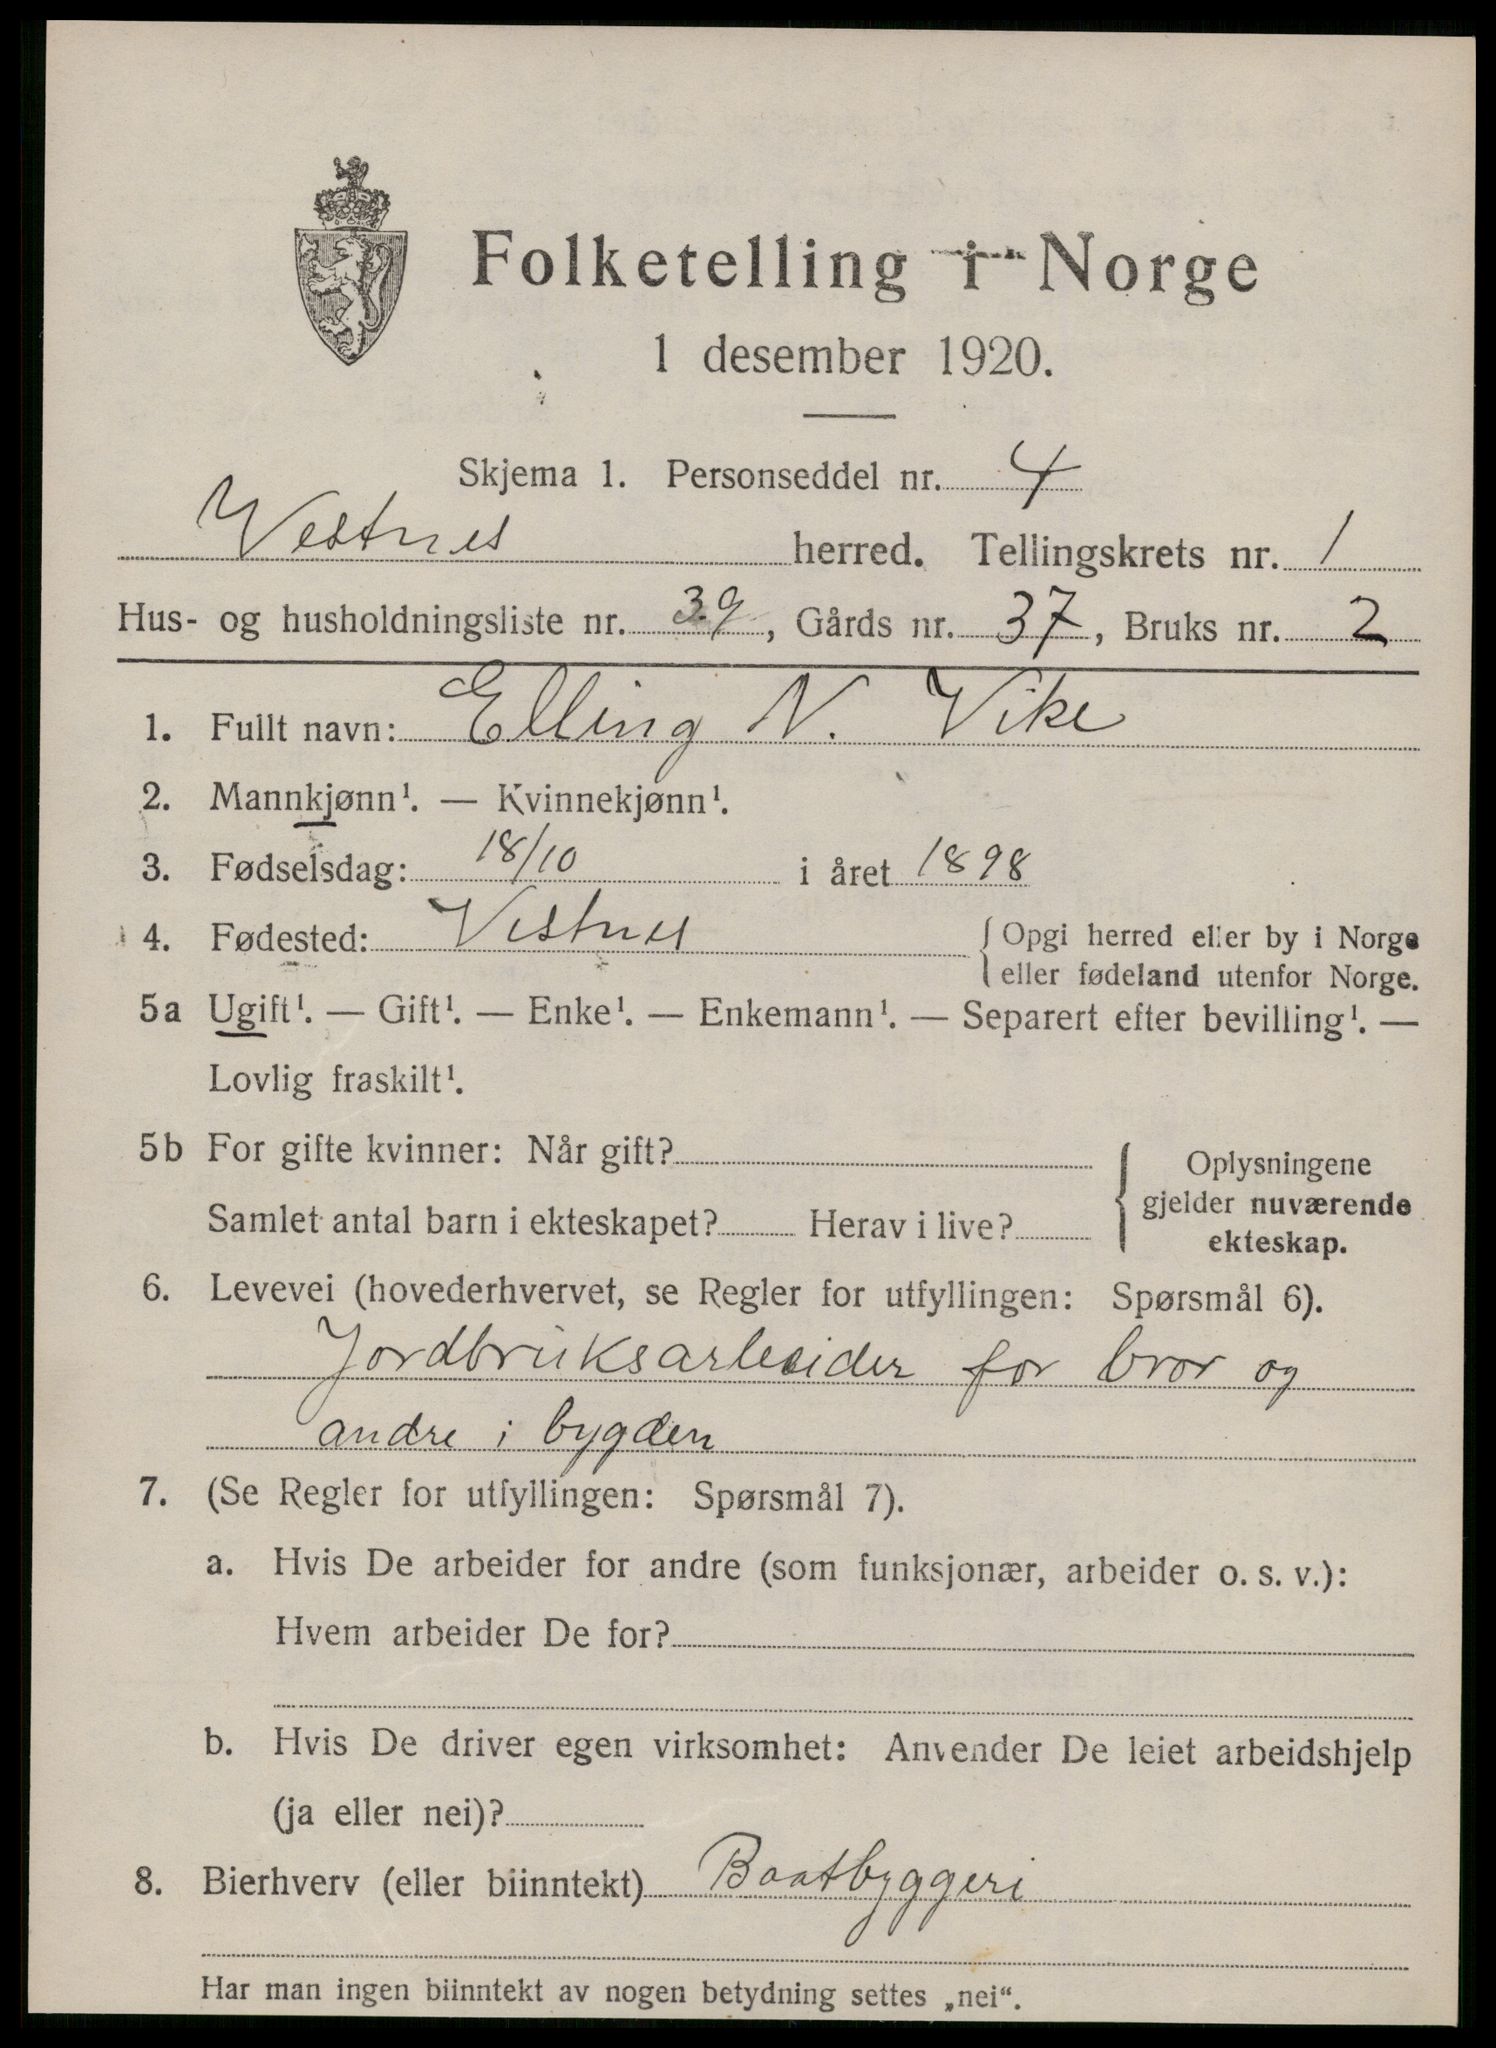 Folketelling i Norge
1 desember 1920.
Skjema 1. Personseddel nr. 4
Vestnes herred. Tellingskrets nr. 1
Hus- og husholdningsliste nr. 39, Gårds nr. 37, Bruks nr. 2
1. Fullt navn: Elling N. Vike
2. Mannkjønn¹. — Kvinnekjønn¹.
3. Fødselsdag: 18/10 i året 1898
4. Fødested: Vestnes { Opgi herred eller by i Norge
eller fødeland utenfor Norge.
5a Ugift¹. — Gift¹. — Enke¹. — Enkemann¹. — Separert efter bevilling¹. —
Lovlig fraskilt¹.
5b For gifte kvinner: Når gift?
Samlet antal barn i ekteskapet? Herav i live?
{ Oplysningene
gjelder nuværende
ekteskap.
6. Levevei (hovederhvervet, se Regler for utfyllingen: Spørsmål 6).
Jordbruksarbeider for bror og
andre i bygden
7. (Se Regler for utfyllingen: Spørsmål 7).
a. Hvis De arbeider for andre (som funksjonær, arbeider o. s. v.):
Hvem arbeider De for?
b. Hvis De driver egen virksomhet: Anvender De leiet arbeidshjelp
(ja eller nei)?
8. Bierhverv (eller biinntekt) Baatbyggeri
Har man ingen biinntekt av nogen betydning settes „nei“.